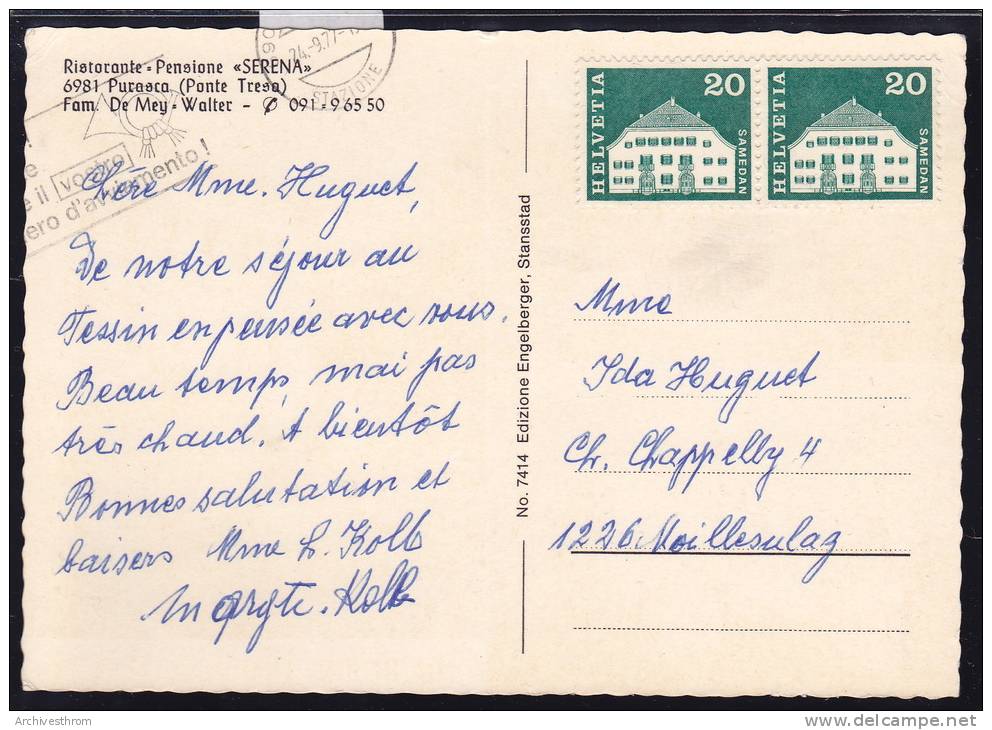 Ristorante-Pensione «SERENA»
6981 Purasca (Ponte Tresa)
Fam. De Mey-Walter - ✆ 091-9 65 50
24.-9.77-1
STAZIONE
e
e il vostro
ero d'avviamento!
Chère Mme. Huguet,
De notre séjour au
Tessin en pensée avec vous.
Beau temps, mai pas
très chaud. A bientôt
Bonnes salutation et
baisers Mme L. Kolb
Kolb
No. 7414 Edizione Engelberger, Stansstad
HELVETIA 20 SAMEDAN
HELVETIA 20 SAMEDAN
Mme
Ida Huguet
Ch. Chappelly 4
1226 Moillesulaz
Archivesthrom
www.delcampe.net